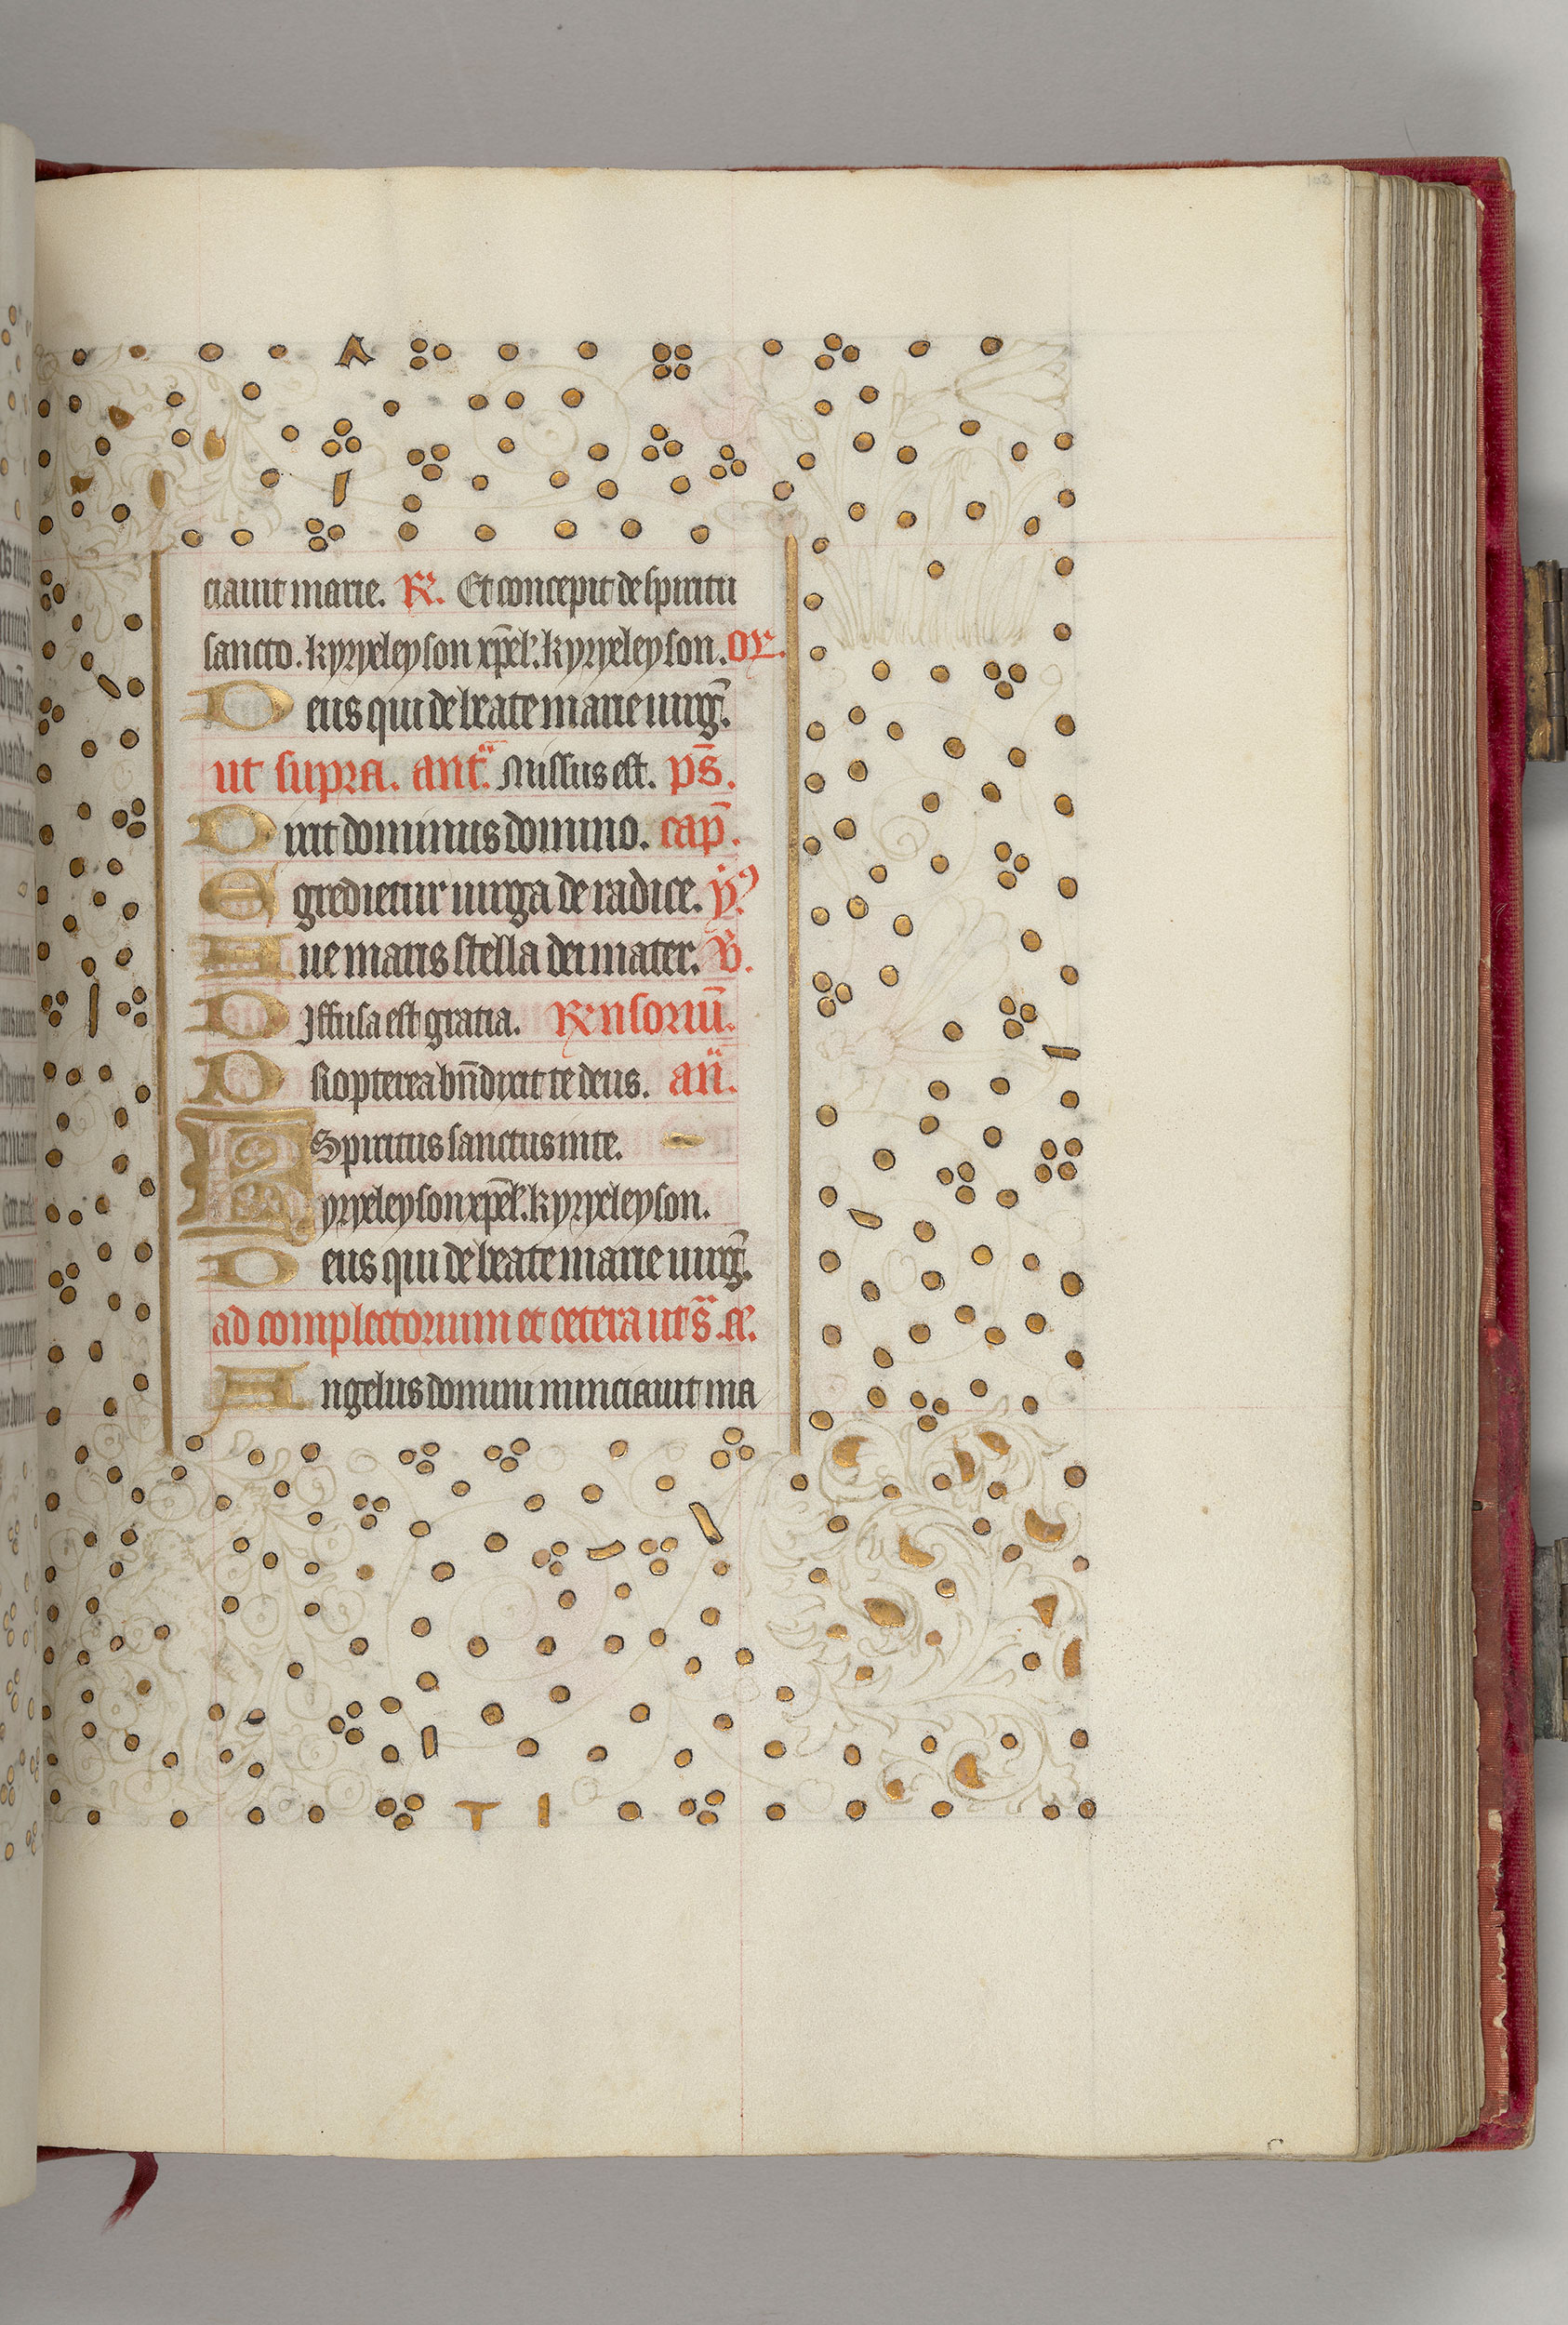 103
ciauit marie. R̃. Et concepit de spiritu
sancto. kyryeleyson xp̄el'. kyryeleyson. or̃.
Deus qui de beate marie uirg̃.
ut supra. ant̃. Missus est. ps̄.
Dixit dominus domino. cap̄.
Egredietur uirga de radice. ẏ.
Aue maris stella dei mater. ℣.
Diffusa est gratia. R̃nsoriū.
Propterea bn̄dixit te deus. an̄.
Spiritus sanctus inte.
kyryeleyson xp̄el'. kyryeleyson.
Deus qui de beate marie uirg̃.
ad complectorium et cetera ut s̃. a.
Angelus domini nunciauit ma